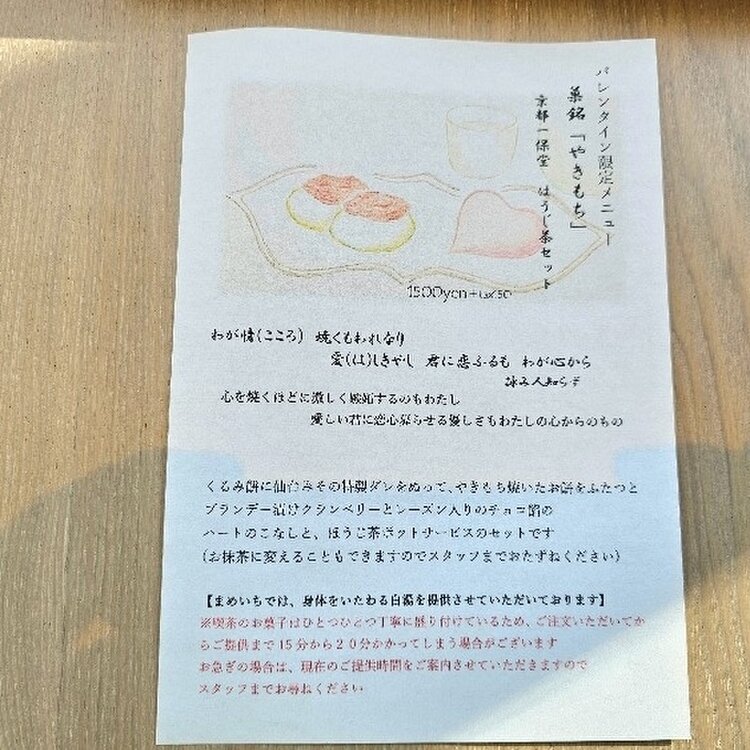 バレンタイン限定メニュー
菓銘「やきもち」
京都一保堂 ほうじ茶セット
1500yen+tax150
わが情(こころ) 焼くもわれなり
愛(は)しきやし 君に恋ふるも わが心から
詠み人知らず
心を焼くほどに激しく嫉妬するのもわたし
愛しい君に恋心募らせる優しさもわたしの心からのもの
くるみ餅に仙台みその特製ダレをぬって、やきもち焼いたお餅をふたつと
ブランデー漬けクランベリーとレーズン入りのチョコ餡の
ハートのこなしと、ほうじ茶ポットサービスのセットです
(お抹茶に変えることもできますのでスタッフまでおたずねください)
【まめいちでは、身体をいたわる白湯を提供させていただいております】
※喫茶のお菓子はひとつひとつ丁寧に盛り付けているため、ご注文いただいてか
らご提供まで15分から20分かかってしまう場合がございます
お急ぎの場合は、現在のご提供時間をご案内させていただきますので
スタッフまでお尋ねください